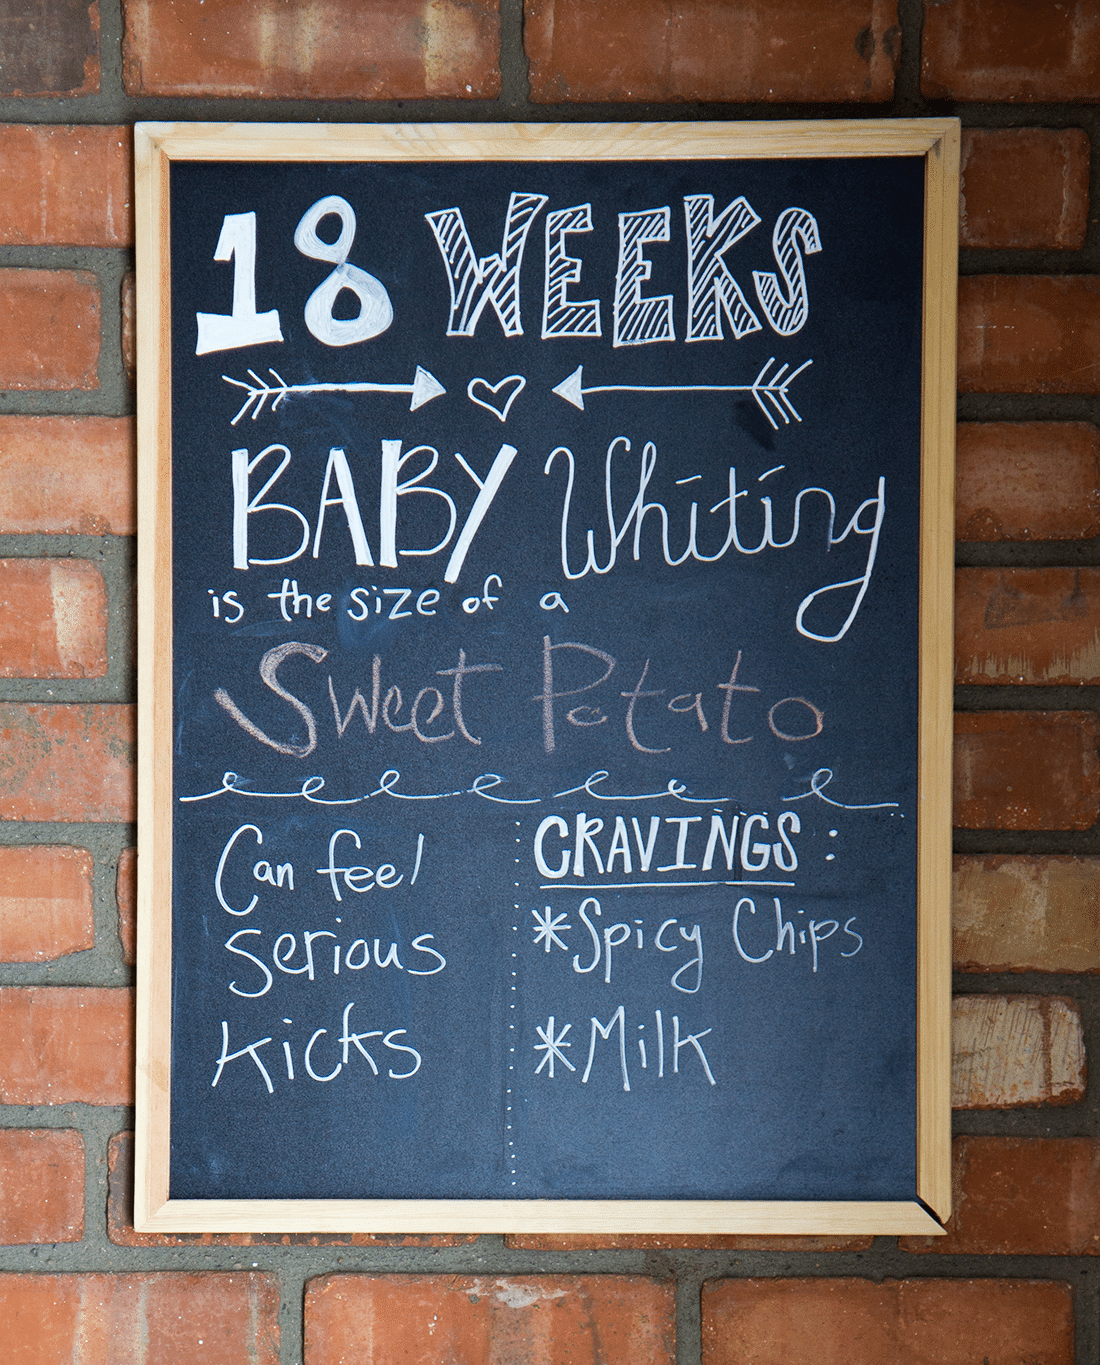 18 WEEKS
BABY Whiting
is the size of a
Sweet Potato
Can feel
serious
kicks
CRAVINGS:
*Spicy Chips
*Milk